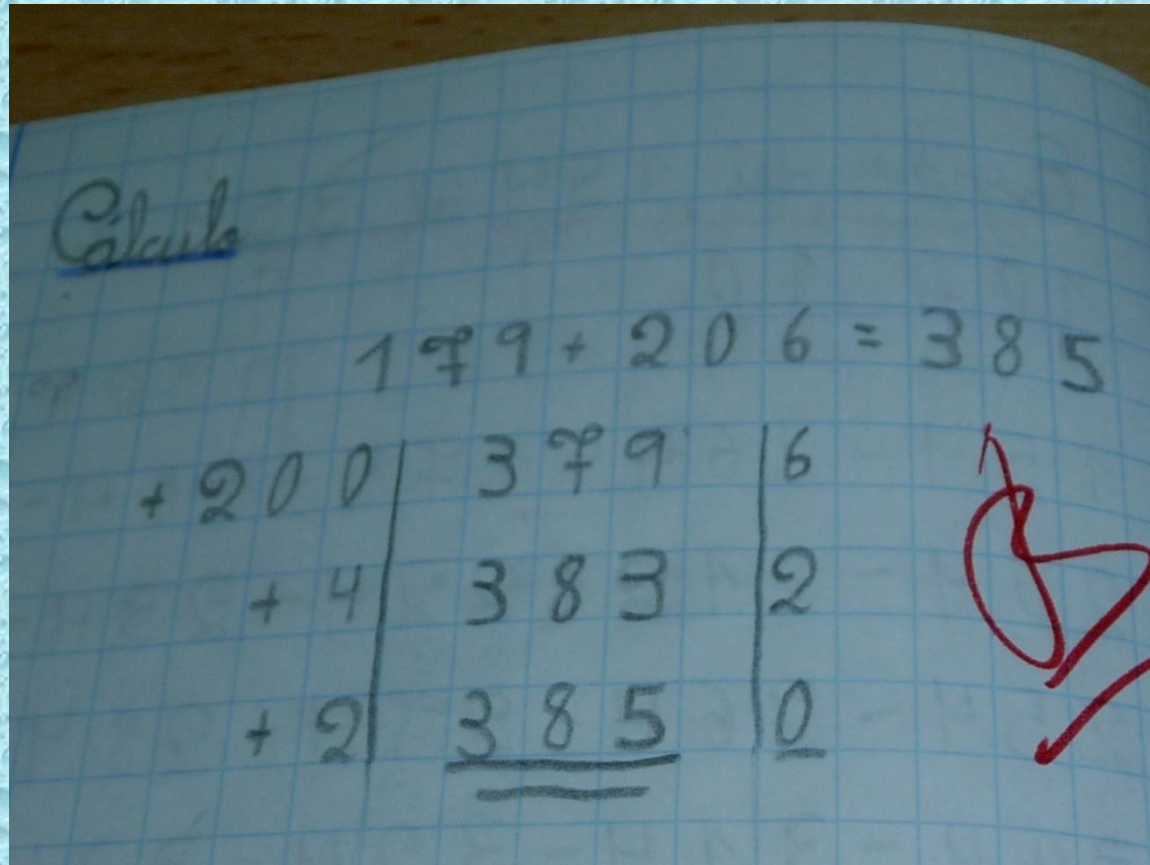 Cálculo
179 + 206 = 385
+ 200 | 379 | 6
+ 4 | 383 | 2
+ 2 | 385 | 0